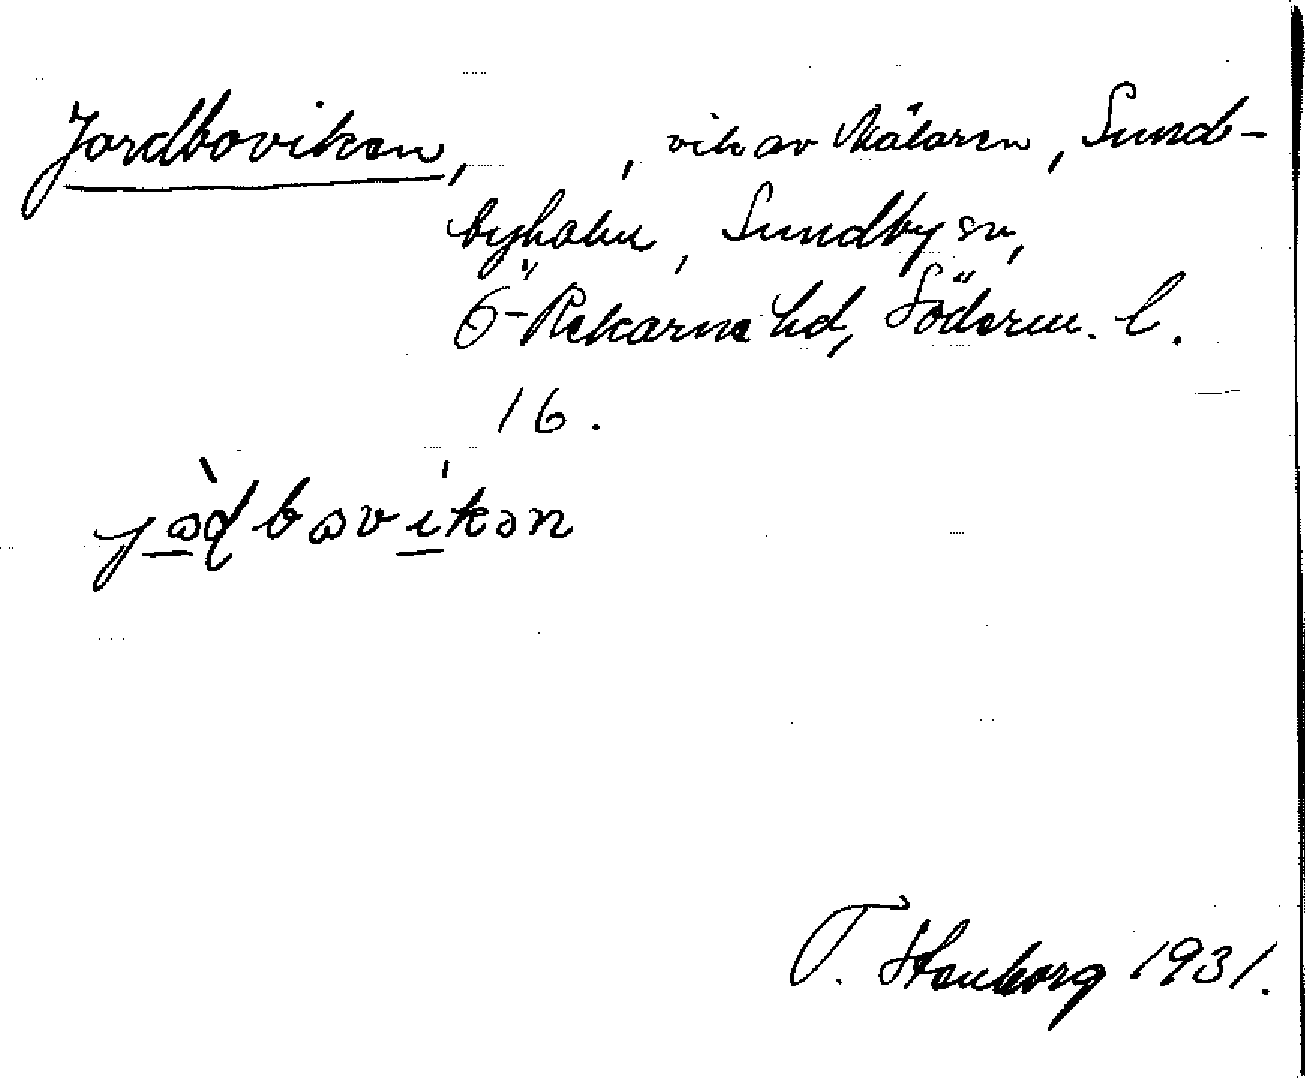 Jordboviken, , vik av Mälaren, Sund-
byholm, Sundby sn,
Ö-Rekarne hd, Söderm. l.
16.
T. Stenborg 1931.